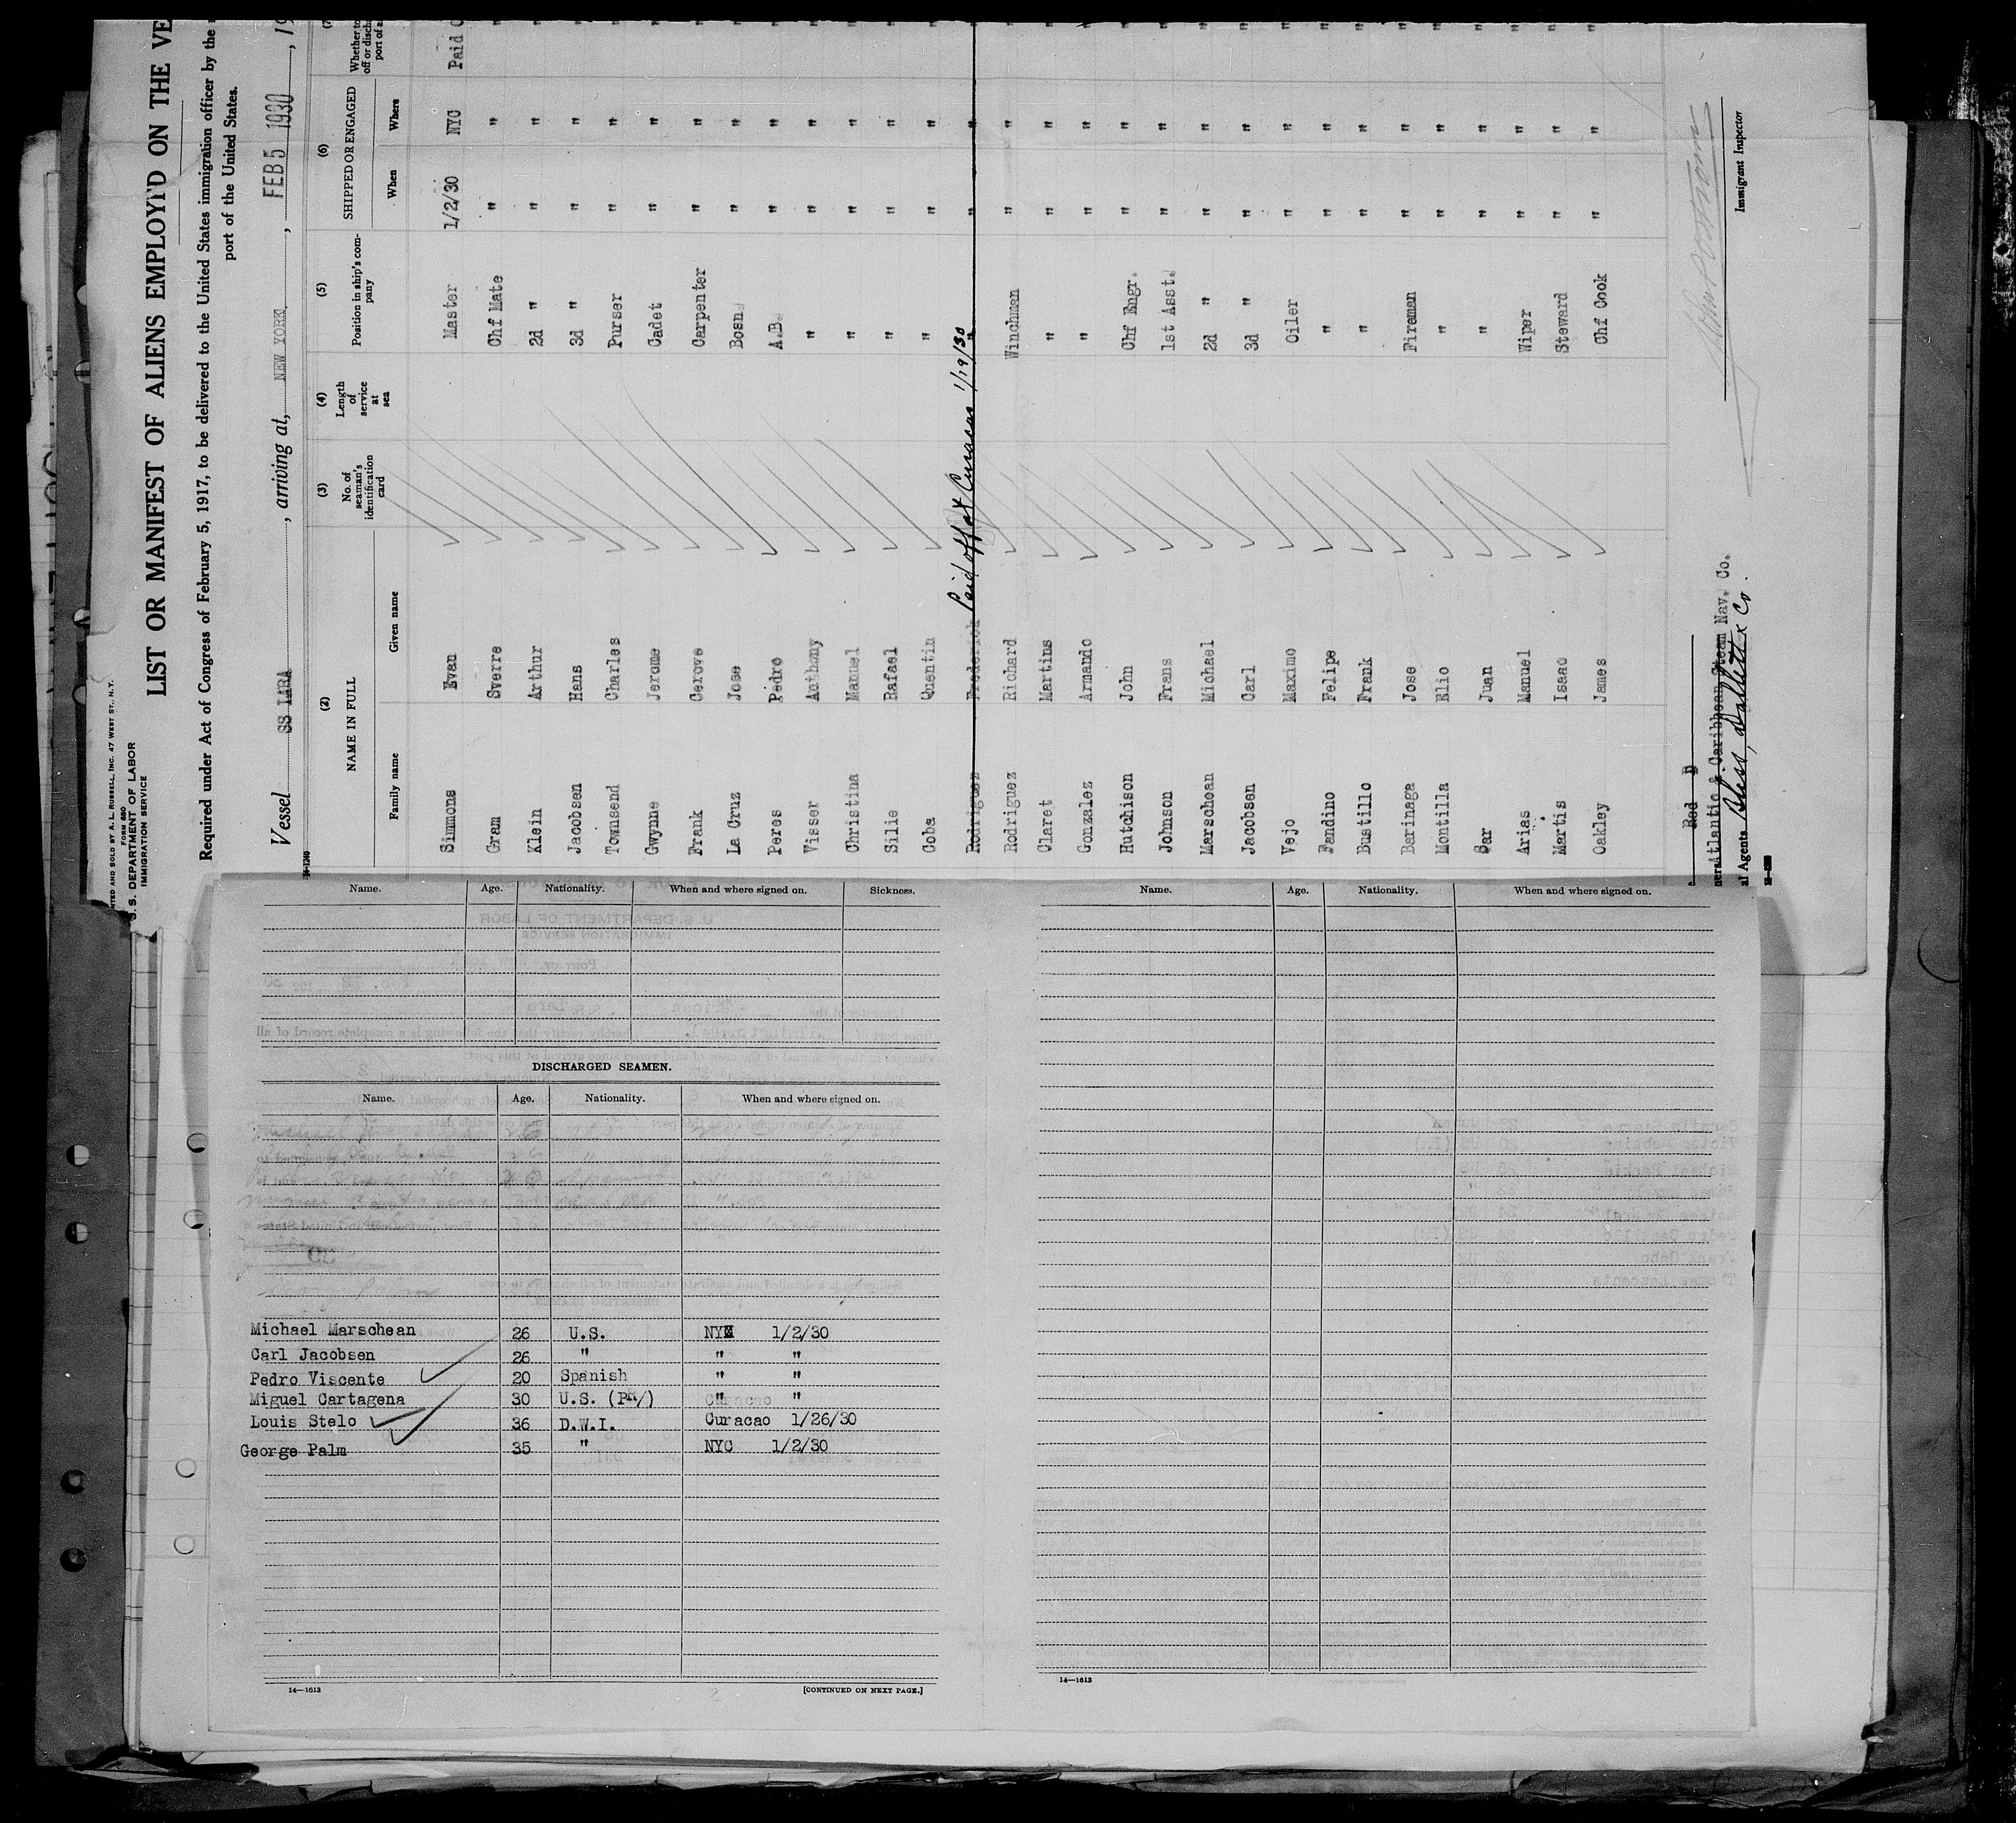 PRINTED AND SOLD BY A. L. RUSSELL, INC. 47 WEST ST., N.Y.
FORM 680
U. S. DEPARTMENT OF LABOR
IMMIGRATION SERVICE
LIST OR MANIFEST OF ALIENS EMPLOYED ON THE VE
Required under Act of Congress of February 5, 1917, to be delivered to the United States immigration officer by the
port of the United States.
Vessel SS IARA, arriving at, NEW YORK, FEB 5 1930, 19
(2) (3) (4) (5) (6) (7)
NAME IN FULL No. of seaman's identification card Length of service at sea Position in ship's company SHIPPED OR ENGAGED Whether to
Family name Given name When Where off or disch port of a
Simmons Evan Master 1/2/30 NYC Paid O
Gram Sverre Chf Mate " " "
Klein Arthur 2d " " " "
Jacobsen Hans 3d " " " "
Townsend Charles Purser " " "
Gwynne Jerome Cadet " " "
Frank Gerove Carpenter " " "
La Cruz Jose Bosn. " " "
Peres Pedro A.B. " " "
Visser Anthony " " " "
Christina Manuel " " " "
Silie Rafael " " " "
Coba Quentin " " " "
Rodriguez Frederick Paid off at Curacao 1/19/30 " " " "
Rodriguez Richard Winchman " " "
Claret Martins " " " "
Gonzalez Armando " " " "
Hutchison John Chf Engr. " " "
Johnson Frans 1st Asst. " " "
Marschean Michael 2d " " " "
Jacobsen Carl 3d " " " "
Vejo Maximo Oiler " " "
Fandino Felipe " " " "
Bustillo Frank " " " "
Barinaga Jose Fireman " " "
Montilla Elio " " " "
Sar Juan " " " "
Arias Manuel Wiper " " "
Martis Isaac Steward " " "
Oakley James Chf Cook " " "
Red D
Atlantic & Caribbean Steam Nav. Co.
al Agents Bliss, Dallett & Co.
Immigrant Inspector
Name. Age. Nationality. When and where signed on. Sickness.
DISCHARGED SEAMEN.
Name. Age. Nationality. When and where signed on.
Michael Marschean 26 U.S. NY 1/2/30
Carl Jacobsen 26 " " "
Pedro Viscente 20 Spanish " "
Miguel Cartagena 30 U.S. (PR/) " "
Louis Stelo 36 D.W.I. Curacao 1/26/30
George Palm 35 " NYC 1/2/30
14—1613 [CONTINUED ON NEXT PAGE.]
Name. Age. Nationality. When and where signed on.
14—1613